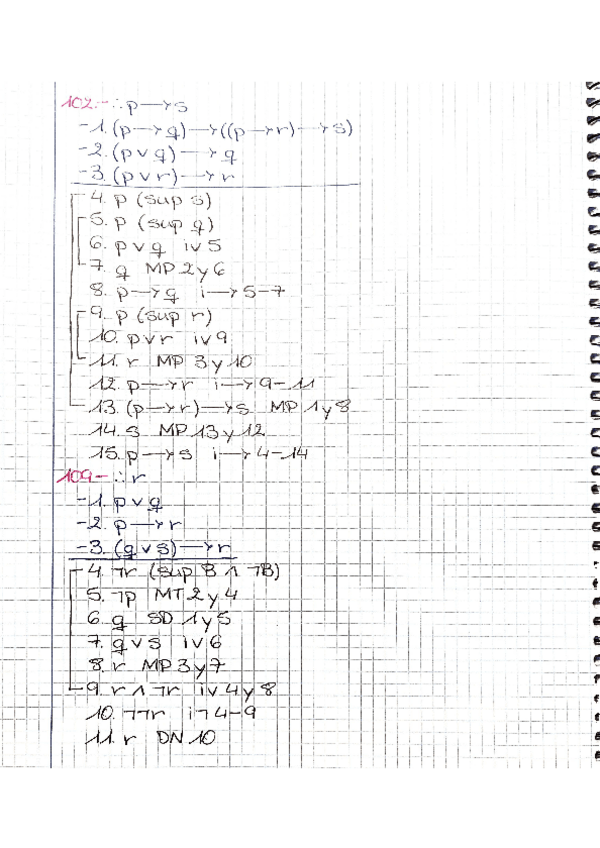 102.- ∴ p → s
-1. (p → q) → ((p → r) → s)
-2. (p ∨ q) → q
-3. (p ∨ r) → r
4. p (sup s)
5. p (sup q)
6. p ∨ q i∨ 5
7. q MP 2 y 6
8. p → q i→ 5-7
9. p (sup r)
10. p ∨ r i∨ 9
11. r MP 3 y 10
12. p → r i→ 9-11
13. (p → r) → s MP 1 y 8
14. s MP 13 y 12
15. p → s i→ 4-14
109- ∴ r
-1. p ∨ q
-2. p → r
-3. (q ∨ s) → r
4. ¬r (sup B ∧ ¬B)
5. ¬p MT 2 y 4
6. q SD 1 y 5
7. q ∨ s i∨ 6
8. r MP 3 y 7
9. r ∧ ¬r i∨ 4 y 8
10. ¬¬r i¬ 4-9
11. r DN 10